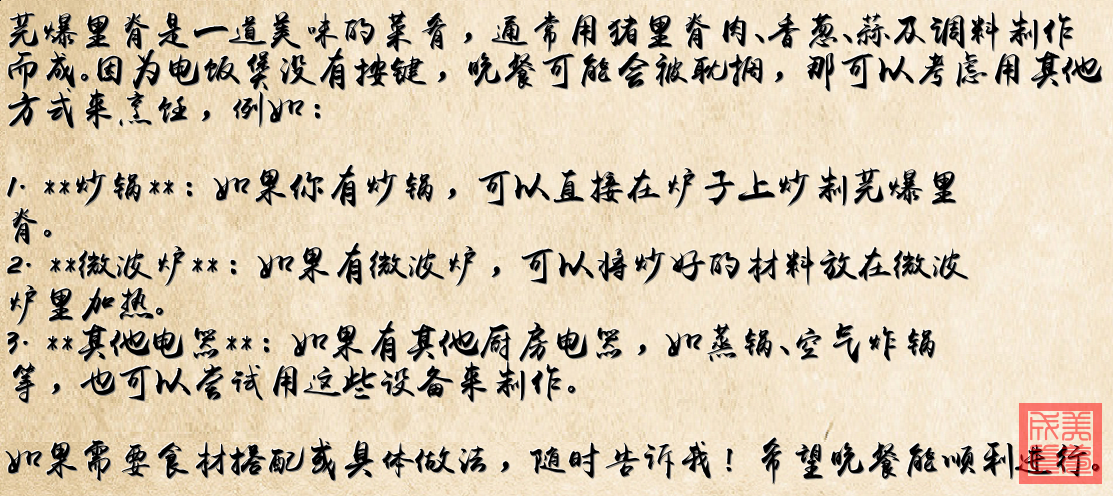 芫爆里脊是一道美味的菜肴，通常用猪里脊肉、香葱、蒜及调料制作
而成。因为电饭煲没有按键，晚餐可能会被耽搁，那可以考虑用其他
方式来烹饪，例如：
1. **炒锅**：如果你有炒锅，可以直接在炉子上炒制芫爆里
脊。
2. **微波炉**：如果有微波炉，可以将炒好的材料放在微波
炉里加热。
3. **其他电器**：如果有其他厨房电器，如蒸锅、空气炸锅
等，也可以尝试用这些设备来制作。
如果需要食材搭配或具体做法，随时告诉我！希望晚餐能顺利进行。